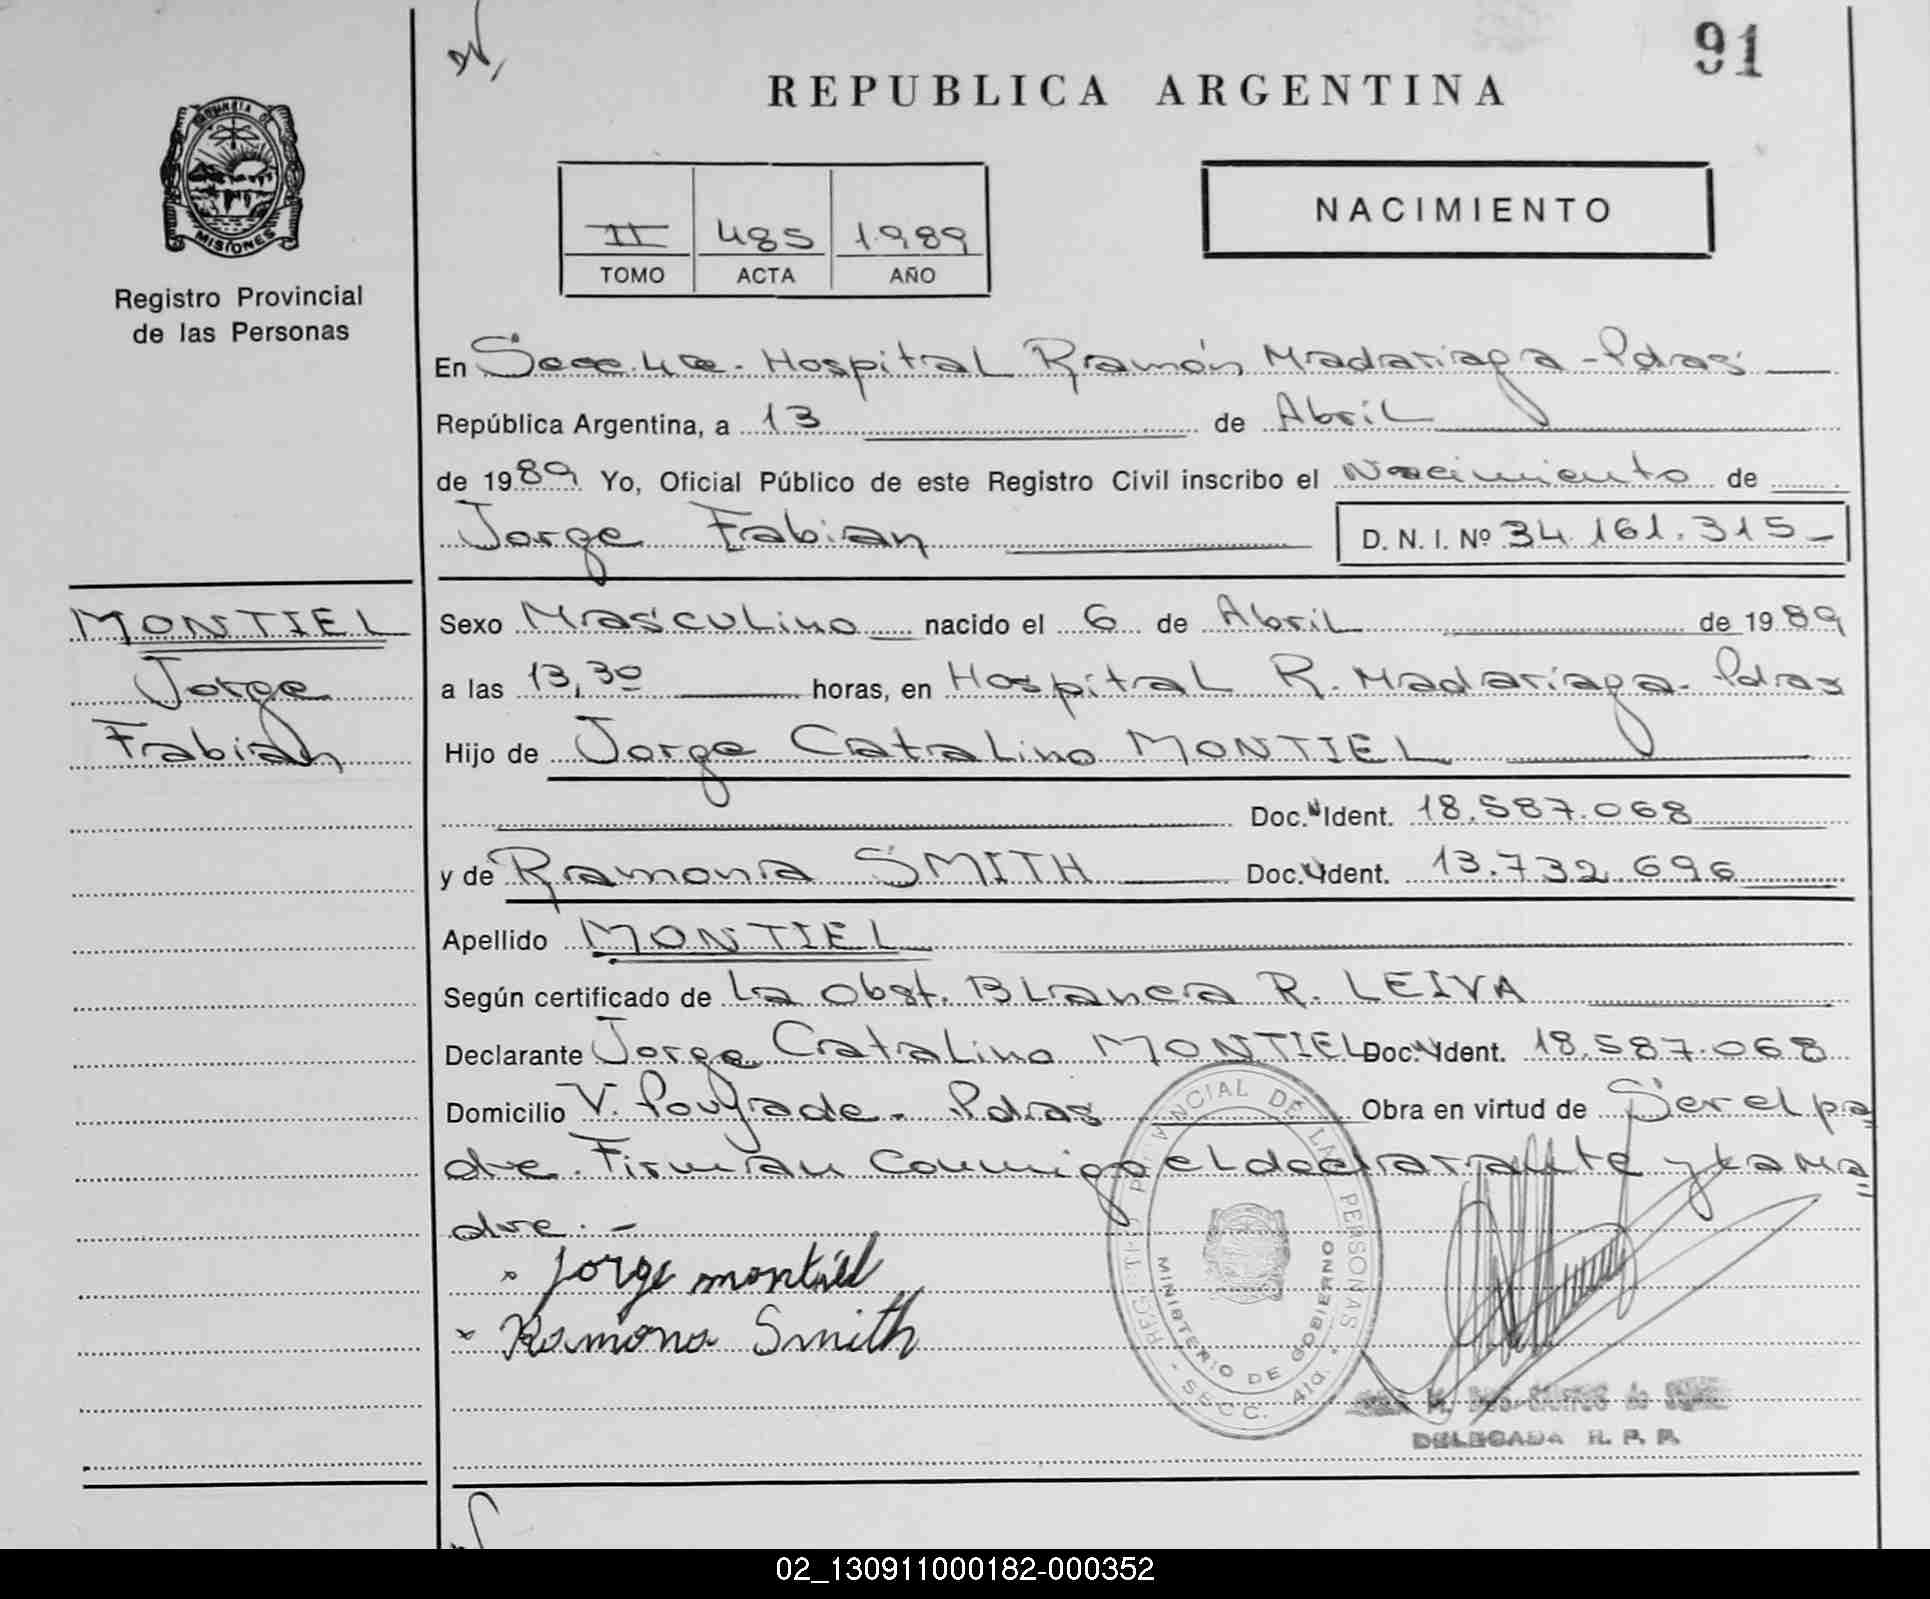 91
REPUBLICA ARGENTINA
MISIONES
Registro Provincial
de las Personas
II 485 1989
TOMO ACTA AÑO
NACIMIENTO
En Secc. 4ta. Hospital Ramón Madariaga - Pdas
República Argentina, a 13 de Abril
de 1989 Yo, Oficial Público de este Registro Civil inscribo el Nacimiento de
Jorge Fabian D. N. I. Nº 34.161.315
MONTIEL
Jorge
Fabian
Sexo Masculino nacido el 6 de Abril de 1989
a las 13,30 horas, en Hospital R. Madariaga - Pdas
Hijo de Jorge Catalino MONTIEL
Doc. Ident. 18.587.068
y de Ramona SMITH Doc. Ident. 13.732.696
Apellido MONTIEL
Según certificado de La Obst. Blanca R. LEIVA
Declarante Jorge Catalino MONTIEL Doc. Ident. 18.587.068
Domicilio V. Poujade - Pdas Obra en virtud de Ser el pa
dre. Firman Conmigo el declarante y la ma
dre. -
Jorge montiel
Ramona Smith
REGISTRO PROVINCIAL DE LAS PERSONAS
MINISTERIO DE GOBIERNO
SECC. 4ta.
DELEGADA R. P. P.
02_130911000182-000352